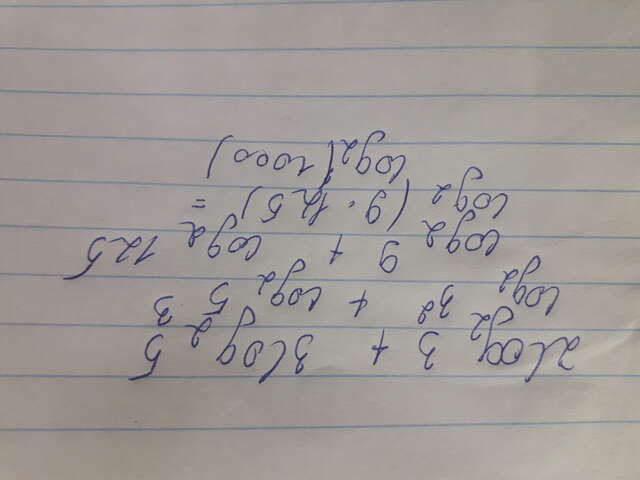 2log₂ 3 + 3log₂ 5
log₂ 3² + log₂ 5³
log₂ 9 + log₂ 125
log₂ (9·125) =
log₂(1000)